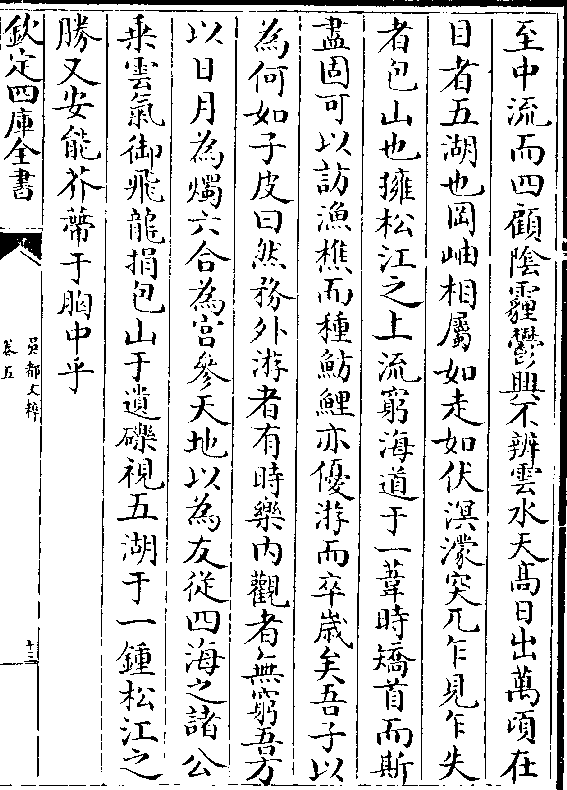 至中流而四顧陰霾鬱興不辨雲水天髙日出萬頃在
目者五湖也岡岫相屬如走如伏溟濛突兀乍見乍失
者包山也擁松江之上流窮海道于一葦時矯首而斯
盡固可以訪漁樵而種魴鯉亦優游而卒嵗矣吾子以
為何如子皮曰然務外游者有時樂内觀者無窮吾方
以日月為燭六合為宫參天地以為友從四海之諸公
乗雲氣御飛龍捐包山于遺礫視五湖于一鍾松江之
勝又安能芥蔕于胸中乎
欽定四庫全書
吳都文粹
卷五
十三